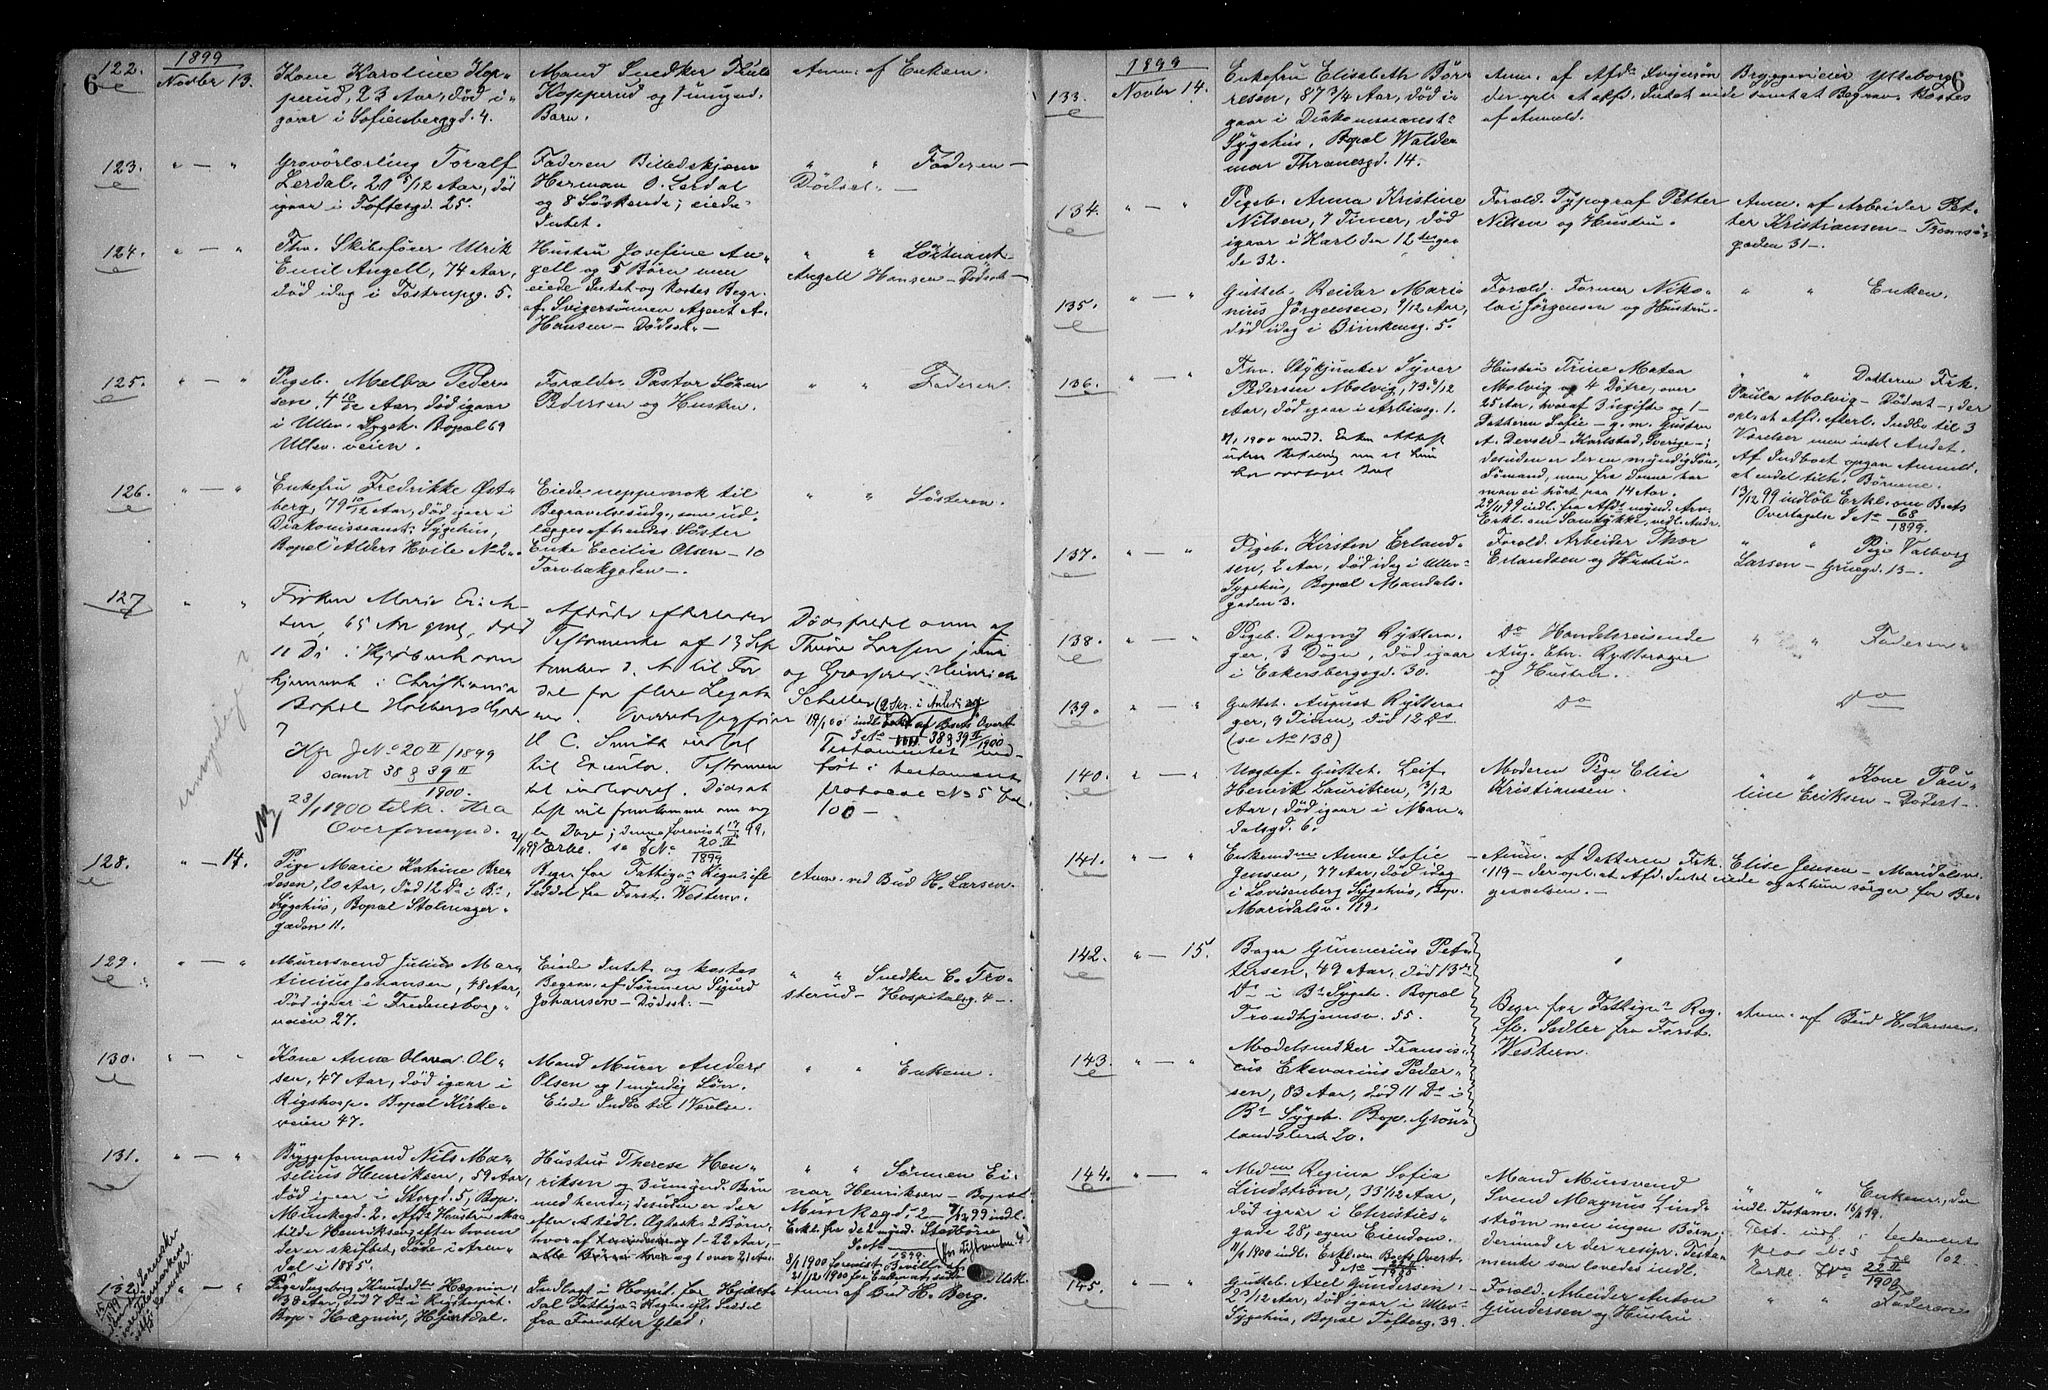 6
122.
1899
Novbr 13.
Kone Karoline Kop-
perud, 23 Aar, död i-
gaar i Sofienberggd. 4.
Mand Snedker
Kopperud og 1 umynd.
Barn.
Anm. af Enken.
123.
" — "
Gravörlærling Toralf
Lerdal, 20 5/12 Aar, död
igaar i Toftesgd. 25.
Faderen Billedskjærer
Herman O. Lerdal
og 8 Söskende; eiede
Intet.
" " Faderen —
Dödsst. —
124.
" — "
Fhv. Skibsförer Ulrik
Emil Angell, 74 Aar,
död idag i Tostrupg. 5.
Hustru Josefine An-
gell og 5 Börn men
eiede Intet og kostes Begr.
af Svigersönnen Agent A.
Hansen — Dödsst. —
" " Löitnant
Angell Hansen — Dödsst. —
125.
" — "
Pigeb. Melba Peder-
sen, 4 10/12 Aar, död igaar
i Ullev. Sygeh. Bopæl 69
Ullev. veien.
Foræld. Pastor Sören
Pedersen og Hustru.
" " Faderen.
126.
" — "
Enkefru Fredrikke Öst-
berg, 79 10/12 Aar, död igaar i
Diakonissanst. Sygehus,
Bopæl Alders Hvile No 2.
Eiede neppe nok til
Begravelsesudg., som ud-
lægges af hendes Söster
Enke Cecilie Olsen — 10
Torvbakgaden —.
" " Sösteren.
127
" "
Fröken Marie Erich-
sen, 65 Aar gml, död
11 Ds i Kjöbenhavn
hjemmeh. i Christiania
Bopæl Holbergs Gade
7
Kfr J No 20 II/1899
samt 38 & 39 II
1900.
23/1 1900 tilskr. Hra
Overformynd.
Afdöde efterlader
Testamente af 13 Sep
tember d. A til For
del for flere Legata
rer. Overretssagförer
C. Smith indsat
til Executor. Testamen
tet indleveret. Dödsat
test vil fremkomme om nog
le Dage; denne forevist 17/11 99.
21/11 99 Værke. se J No 20 II
1899
Dödsfaldet anm af
Larsen
og Grosserer Heinrich
Scheller (2 Skr. i Anledn af
19/1 00 indl. af Boets Overt.
J No 38 & 39 II
1900
Testamentet ind
fört i testaments
protocol No 5 fol
100 —
umyndige?
128.
" — 14.
Pige Marie Katrine Bre-
desen, 20 Aar, död 12 Ds i By.
Sygehus, Bopæl Stolmager-
gaden 11.
Begr. for Fattigvs Regn. ifl.
Seddel fra Forst. Western.
Anm. ved Bud H. Larsen.
129.
" — "
Murersvend Julius Mar-
tinius Johansen, 48 Aar,
död igaar i Fredensborg-
veien 27.
Eiede Intet og kostes
Begrav. af Sönnen Sigurd
Johansen — Dödsst. —
" " Snedker C. Tro-
sterud — Hospitalsg. 4 —.
130.
" — "
Kone Anna Olava Ol-
sen, 47 Aar, död igaar i
Rigshosp. Bopæl Kirke-
veien 47.
Mand Murer Anders
Olsen og 1 myndig Sön.
Eiede Indbo til 1 Værelse.
" " Enkem.
131.
" — "
Bryggeformand Nils Ma-
selius Henriksen, 59 Aar,
död igaar i Storgd. 5, Bop.
Munkegd. 2. Afds Hustru Ma-
tilde Henriksen, efter hvem
der er skiftet, döde i Aren-
dal i 1885
Hustru Therese Hen-
riksen og 3 umynd. Börn
med hende; desuden er der
efter afdöd. Ægtesk. 2 Börn,
hvoraf 1 — 22 Aar, —
og 1 over 21 Aar.
" " Sönnen Ei-
nar Henriksen — Bopæl
Munkegd. 2 — 4/12 99 indl.
Erkl. fra de 2 mynd. Stedbörn
1899
8/1 1900 forevist Bevilling af
21/12 1900 for Enken at sidde i Usk.
132.
" — "
Pige Ingeborg Hægnin,
38 Aar, död 7 Ds i Rigshospit.
Bop. Hægnin, Hjartdal.
Indlagt i Hospit. for Hjart-
dal Fattigvs Regn. ifl. Seddel
fra Forvalter Glad.
Anm. af Bud H. Berg.
6
133.
1899
Novbr 14.
Enkefru Elisabeth Bör-
resen, 87 3/4 Aar, död i-
gaar i Diakonissanst.
Sygehus, Bopæl Walde-
mar Thranesgd. 14.
Anm. af Afds Svigersön Bryggerieier Ytteborg
der opl. at afd. Intet eiede samt at Begrav. kostes
af Anmeld.
134.
" — "
Pigeb. Anna Kristine
Nilsen, 7 Timer, död
igaar i Karl den 12tes ga-
de 32.
Foræld. Typograf Petter
Nilsen og Hustru.
Anm. af Arbeider Pet-
ter Kristiansen — Tromsö-
gaden 31 —.
135.
" — "
Gutteb. Reidar Mari-
nius Jörgensen, 9/12 Aar,
död idag i Brinkensg. 5.
Foræld. Former Niko-
lai Jörgensen og Hustru.
" " Enken.
136.
" — "
Fhv. Stykjunker Syver
Pedersen Molvig, 73 9/12
Aar, död igaar i Arbinsg. 1.
8/1 1900 medd. Enken Attest
uden Betaling om at hun
har overtaget Boet
Hustru Trine Matea
Molvig og 4 Dötre, over
25 Aar, hvoraf 3 ugifte og 1 —
Datteren Sofie — g. m. Gustav
A. Devold — Karlstad, Sverige —;
desuden er der en myndig Sön,
Sömand, men fra denne har
man ei hört paa 14 Aar.
29/11 99 indl. fra Afds mynd. Arv.
Erkl. om Samtykke, vedl. Andr.
" " Datteren Frk.
Paula Molvig — Dödsst. —, der
opl. at Afd. efterl. Indbo til 3
Værelser men intet Andet.
Af Indboet opgav Anmeld.
at endel tilh. Börnene.
13/12 99 indlöb Erkl. om Boets
Overtagelse J No 68
1899.
137.
" — "
Pigeb. Kirsten Erland-
sen, 2 Aar, död idag i Ullev.
Sygehus, Bopæl Mandals-
gaden 3.
Foræld. Arbeider Thor
Erlandsen og Hustru.
" " Pige Valborg
Larsen — Gruegd. 13 —.
138.
" — "
Pigeb. Dagny Ryttera-
ger, 3 Dögn, död igaar
i Eckersbergsgd. 30.
Do Handelsreisende
Aug. Chr. Rytterager
og Hustru.
" " Faderen.
139.
" — "
Gutteb. August Ryttera-
ger, 9 Timer, död 12 Ds
(se No 138)
Do
Do
140.
" — "
Uægtef. Gutteb. Leif
Henrik Lauritzen, 3/12
Aar, död igaar i Man-
dalsgd. 6.
Moderen Pige Elise
Kristiansen.
" " Kone Pau-
line Eriksen — Dödsst. —
141.
" — "
Enkemdm Anne Sofie
Jensen, 77 Aar, död idag
i Lovisenberg Sygehus, Bop.
Maridalsv. 119.
Anm. af Datteren Frk. Elise Jensen — Maridalsv.
119 — der opl. at Afd. Intet eiede og at hun sörger for Be-
gravelsen. —
142.
" — 15.
Bager Gunnerius Pet-
tersen, 49 Aar, död 13de
Ds i By Sygeh. Bopæl
Trondhjemsv. 55.
Begr. for Fattigvs Reg.
ifl. Sedler fra Forst.
Western.
Anm. af Bud H. Larsen.
143.
" — "
Modelsnedker Francis-
cus Ekevarius Peder-
sen, 83 Aar, död 11 Ds i
By Sygeh. Bop. Grön-
landsleret 20.
144.
" — "
Mdme Regina Sofia
Lindström, 33 1/12 Aar,
död igaar i Christies-
gade 28, egen Eiendom.
9/1 1900 indl. Erkl. om Boets Overt.
J No 22 II
1900
Mand Mursvend
Svend Magnus Lind-
ström men ingen Börn;
derimod er der resipr. Testa-
mente som lovedes indl.
" " Enkem., der
indl. Testam. 16/11 99.
Test. indf. i testaments
prot No 5 fol 102
Erkl. J No 22 II
1900
145.
" — "
Gutteb. Axel Gundersen,
2 3/12 Aar, död igaar i Ullev.
Sygehus, Bopæl Toftesg. 39.
Foræld. Arbeider Anton
Gundersen og Hustru
" " Faderen